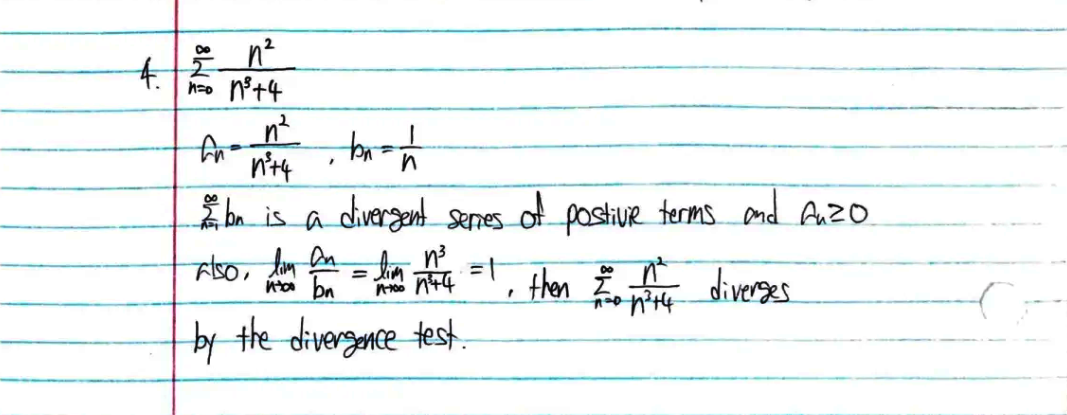 4. ∑_{n=0}^{∞} n²/(n³+4)
aₙ = n²/(n³+4) , bₙ = 1/n
∑_{n=1}^{∞} bn is a divergent series of postivie terms and aₙ≥0
also, lim_{n→∞} aₙ/bₙ = lim_{n→∞} n³/(n³+4) = 1 , then ∑_{n=0}^{∞} n²/(n³+4) diverges
by the divergence test.